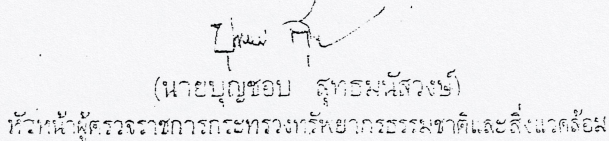 (นายบุญชอบ สุทธมนัสวงษ์)
หัวหน้าผู้ตรวจราชการกระทรวงทรัพยากรธรรมชาติและสิ่งแวดล้อม